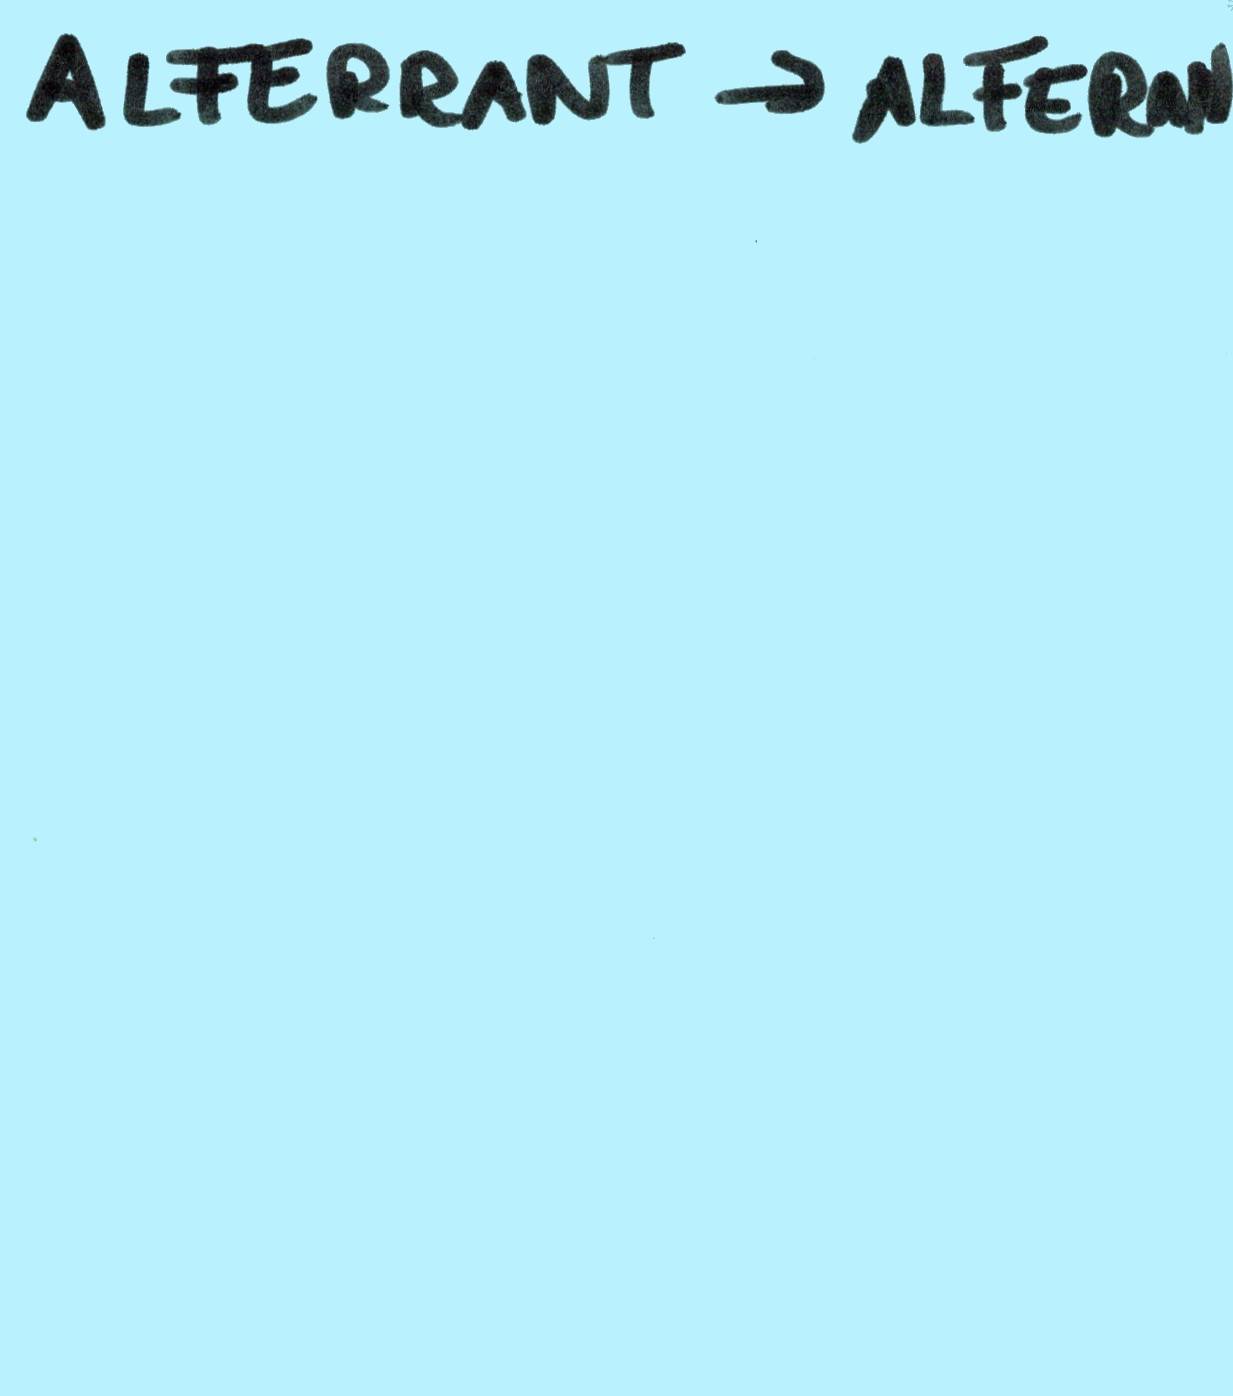 ALFERRANT → ALFERAN